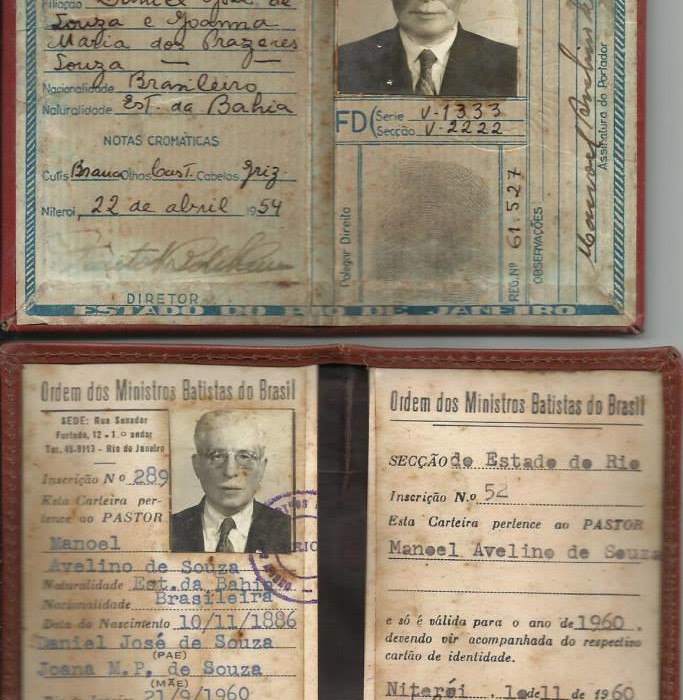 Filiação Daniel José de
Souza e Joanna
Maria dos Prazeres
Souza
Nacionalidade Brasileiro
Naturalidade Est. da Bahia
NOTAS CROMÁTICAS
Cutis Branca Olhos Cast. Cabelos Griz.
Niteroi, 22 de abril 1954
DIRETOR
FD (Serie V-1333
Secção V-2222
Polegar Direito
REG. Nº 61.527
OBSERVAÇÕES
Assinatura do Portador
ESTADO DO RIO DE JANEIRO
Ordem dos Ministros Batistas do Brasil
SEDE: Rua Senador
Furtado, 12 - 1.º andar
Rio de Janeiro
Inscrição Nº 289
Esta Carteira per-
tence ao PASTOR
Manoel
Avelino de Souza
Naturalidade Est. da Bahia
Nacionalidade Brasileira
Data do Nascimento 10/11/1886
Daniel José de Souza
(PAE)
Joana M.P. de Souza
(MÃE)
21/9/1960
Ordem dos Ministros Batistas do Brasil
SECÇÃO do Estado do Rio
Inscrição N.º 52
Esta Carteira pertence ao PASTOR
Manoel Avelino de Souza
e só é válida para o ano de 1960.
devendo vir acompanhada do respectivo
cartão de identidade.
Niterói
de 11 de 1960